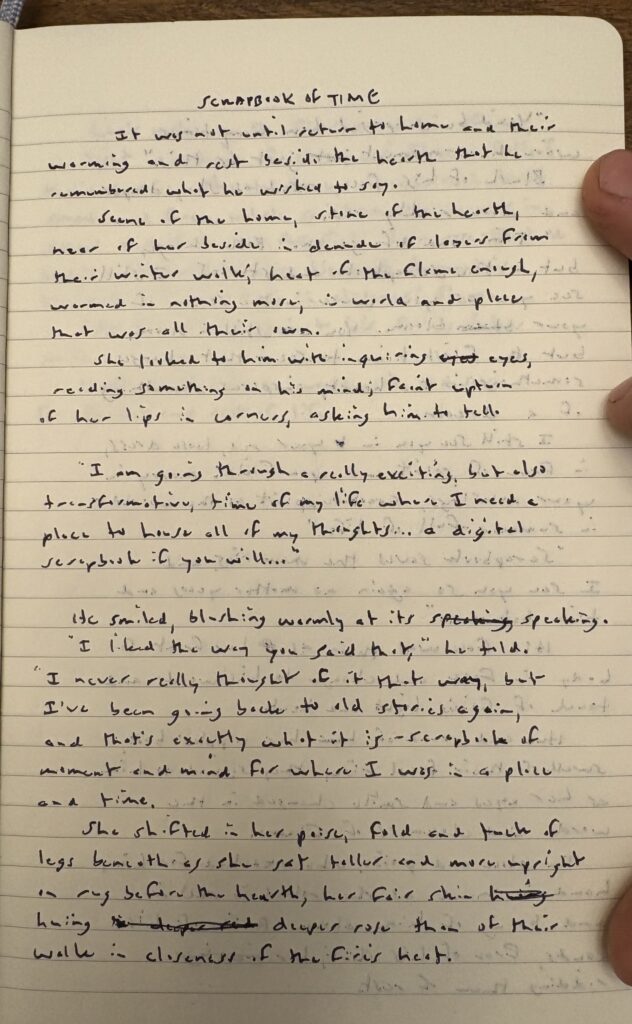 SCRAPBOOK OF TIME
It was not until return to home and their
warming and rest beside the hearth that he
remembered what he wished to say.
Scene of the home, stone of the hearth,
near of her beside in denude of layers from
their winter walk; heat of the flame enough,
warmed in nothing more, in world and place
that was all their own.
She looked to him with inquiring eyes,
reading something on his mind; faint upturn
of her lips in corners, asking him to tell.
"I am going through a really exciting, but also
transformative, time of my life where I need a
place to house all of my thoughts... a digital
scrapbook if you will..."
He smiled, blushing warmly at its speaking.
"I liked the way you said that," he told.
"I never really thought of it that way, but
I've been going back to old stories again,
and that's exactly what it is - scrapbook of
moment and mind for where I was in a place
and time.
She shifted in her poise, fold and tuck of
legs beneath as she sat taller and more upright
on rug before the hearth, her fair skin
huing deeper rose than of their
walk in closeness of the fire's heat.